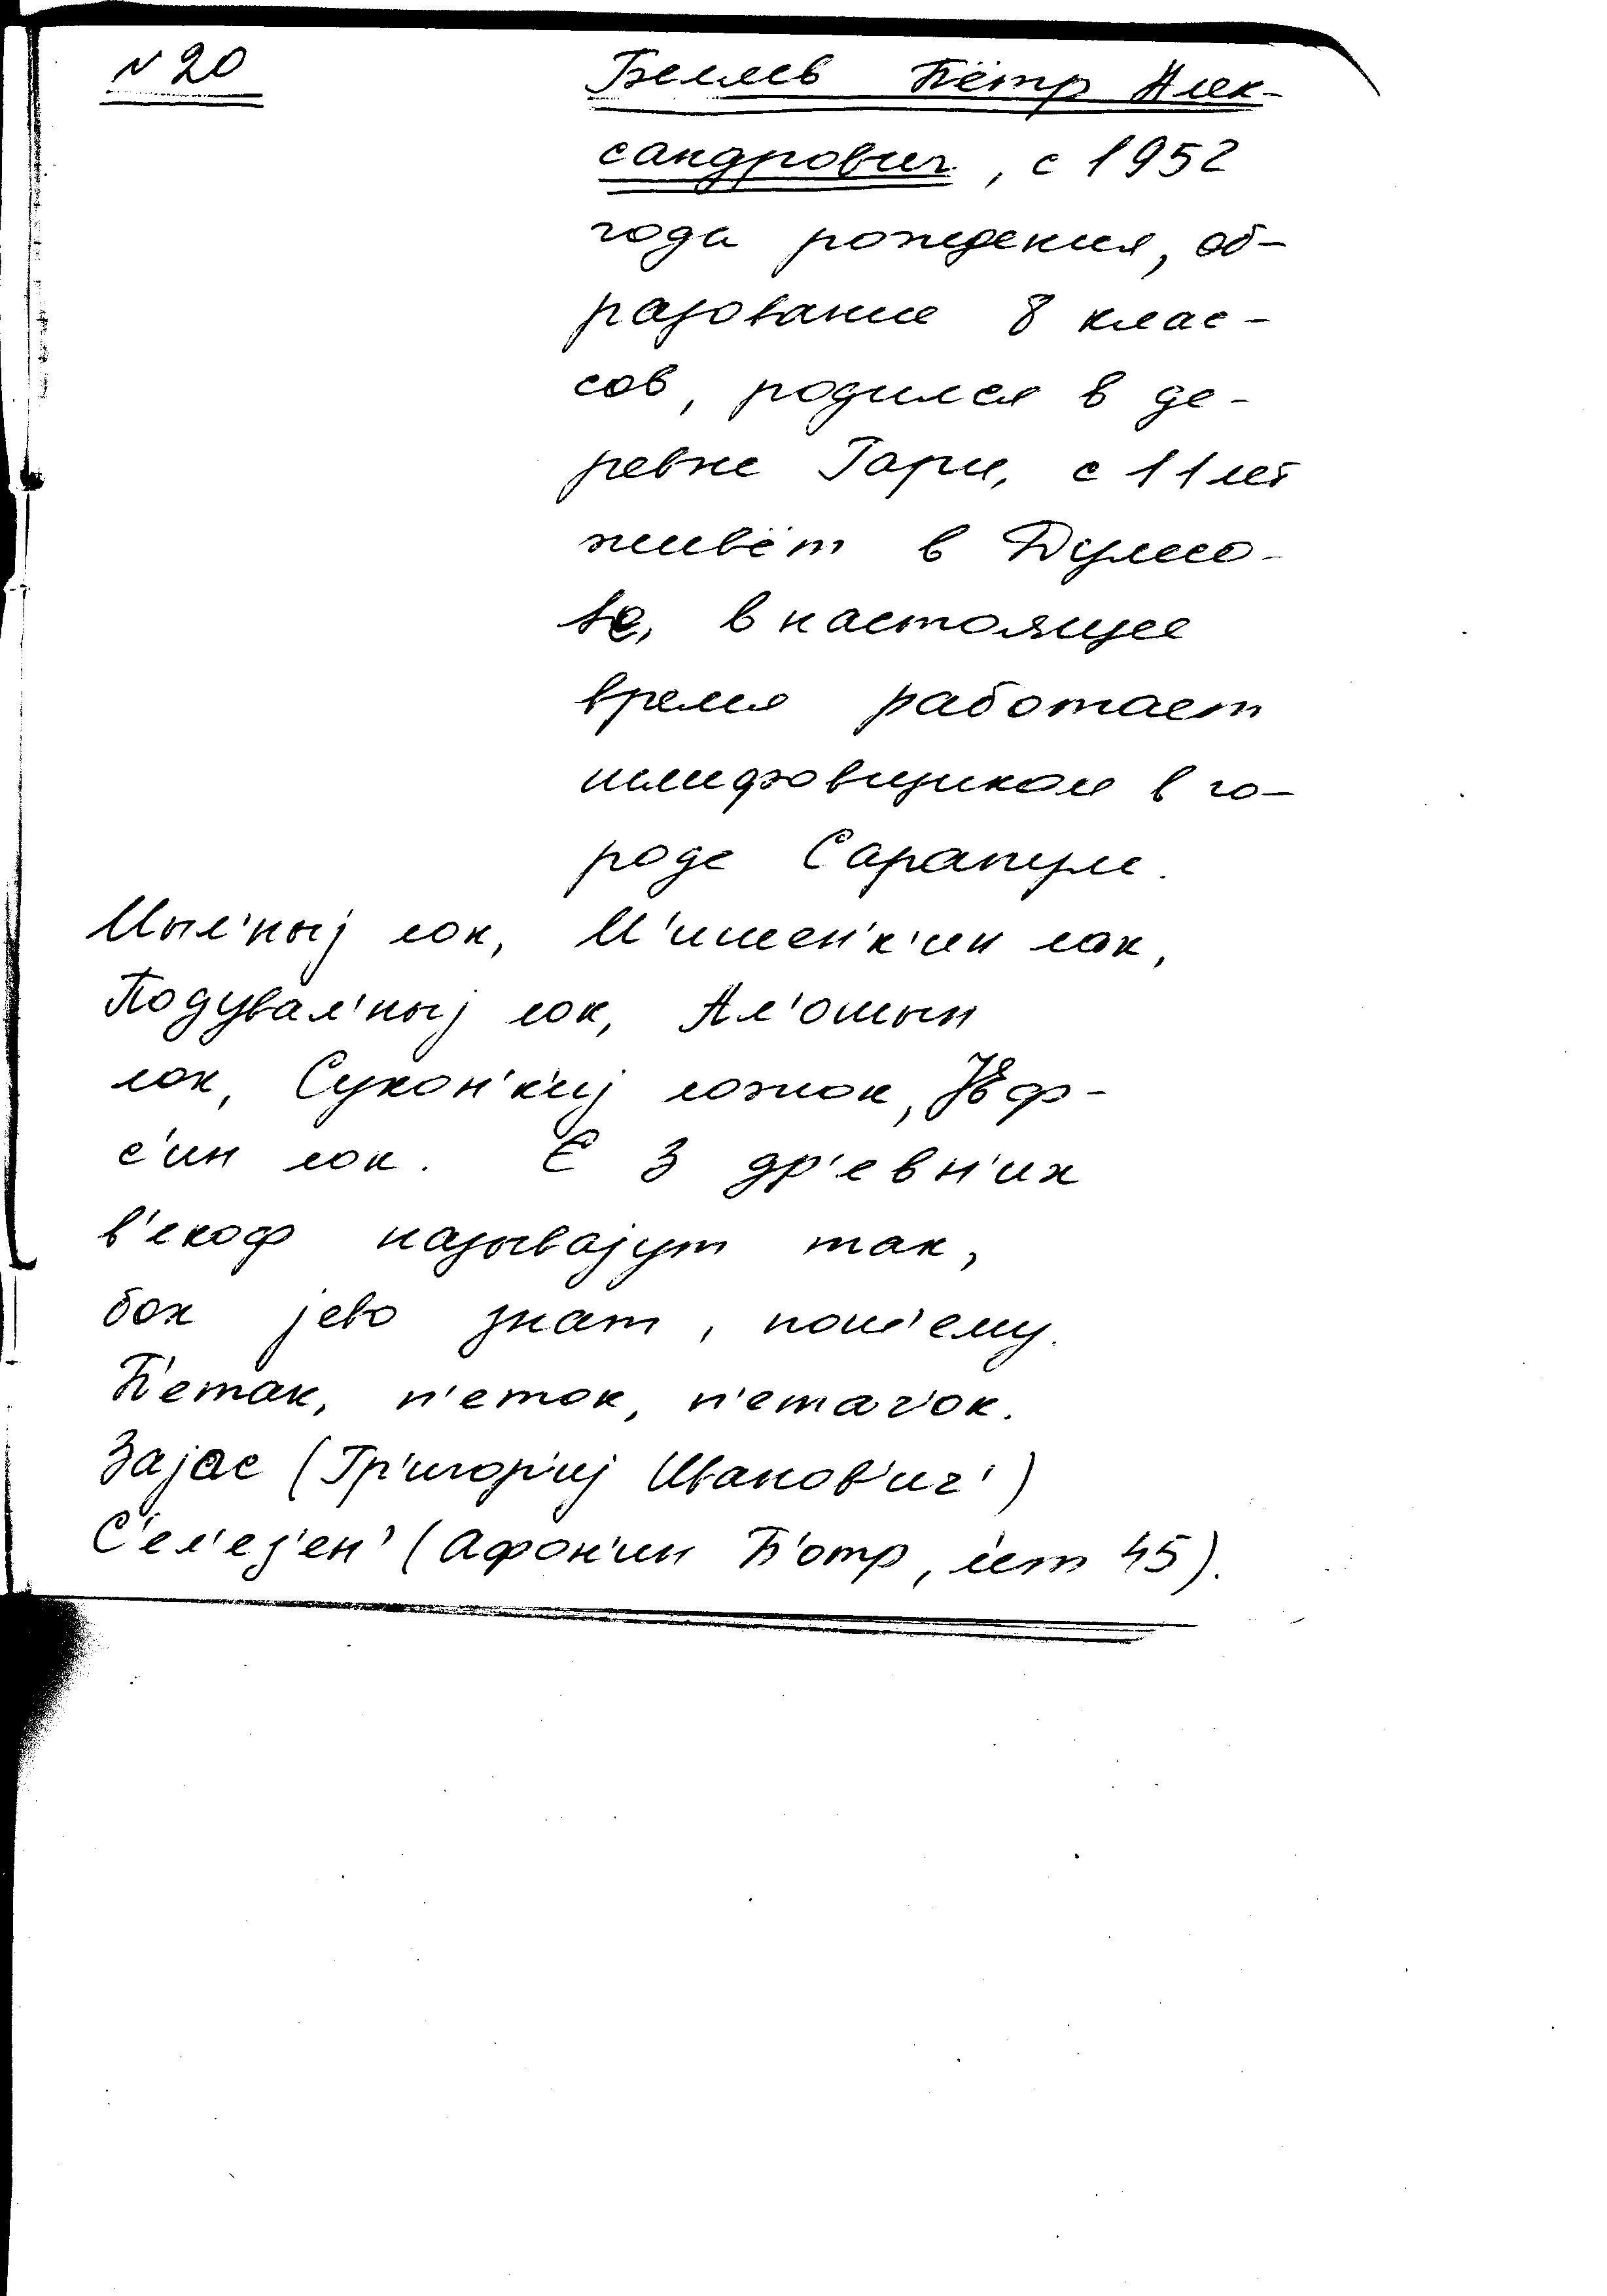 N 20
Беляев Пётр Алек-
сандрович, с 1952
года рождения, об-
разование 8 клас-
сов, родился в де-
ревне Гари, с 11 лет
живёт в Дулесо-
ве, в настоящее
время работает
шлифовщиком в го-
роде Сарапуле.
Мыл'ныј лок, М'ишен'к'ин лок,
Подувал'ныј лок, Ал'ошын
лок, Сукон'к'иј ложок,
с'ин лок. С З др'евн'их
в'екоф называјут так,
бох јево знат, поч'ему.
П'етак, п'еток, п'етач'ок.
Зајас (Гр'игор'иј Иванов'ич')
С'ел'ез'ен' (Афон'ин П'отр, л'ет 45).